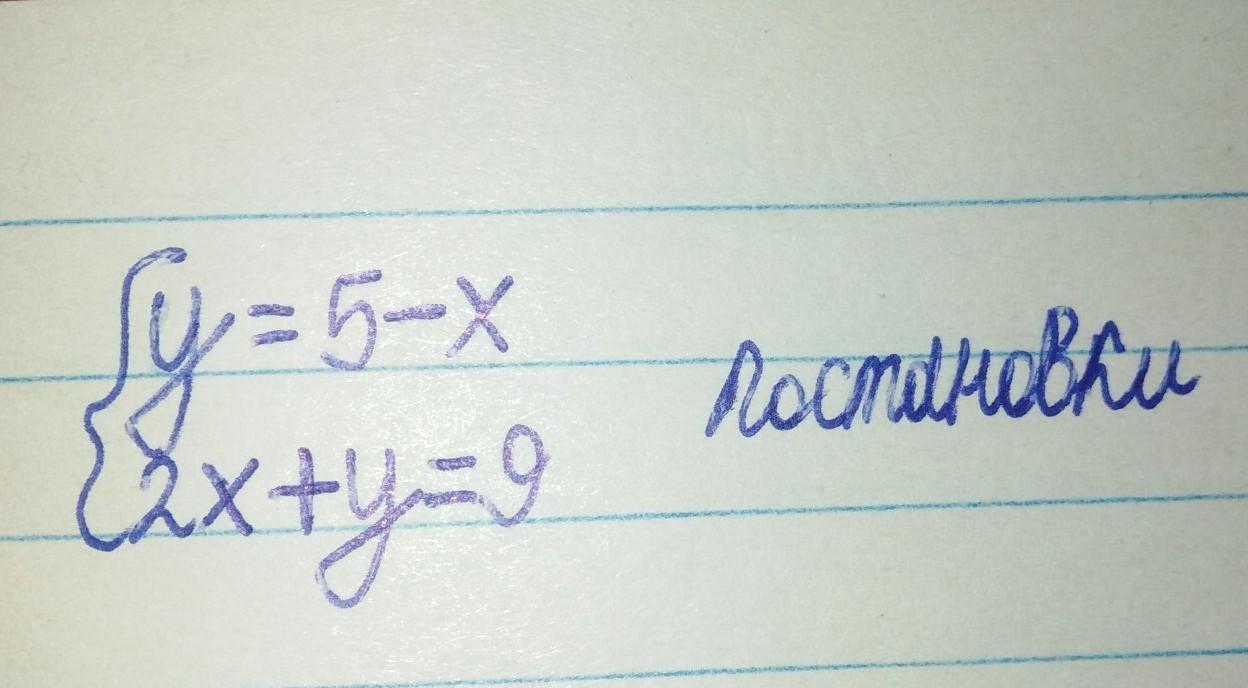 y = 5 - x
2x + y = 9
постановки